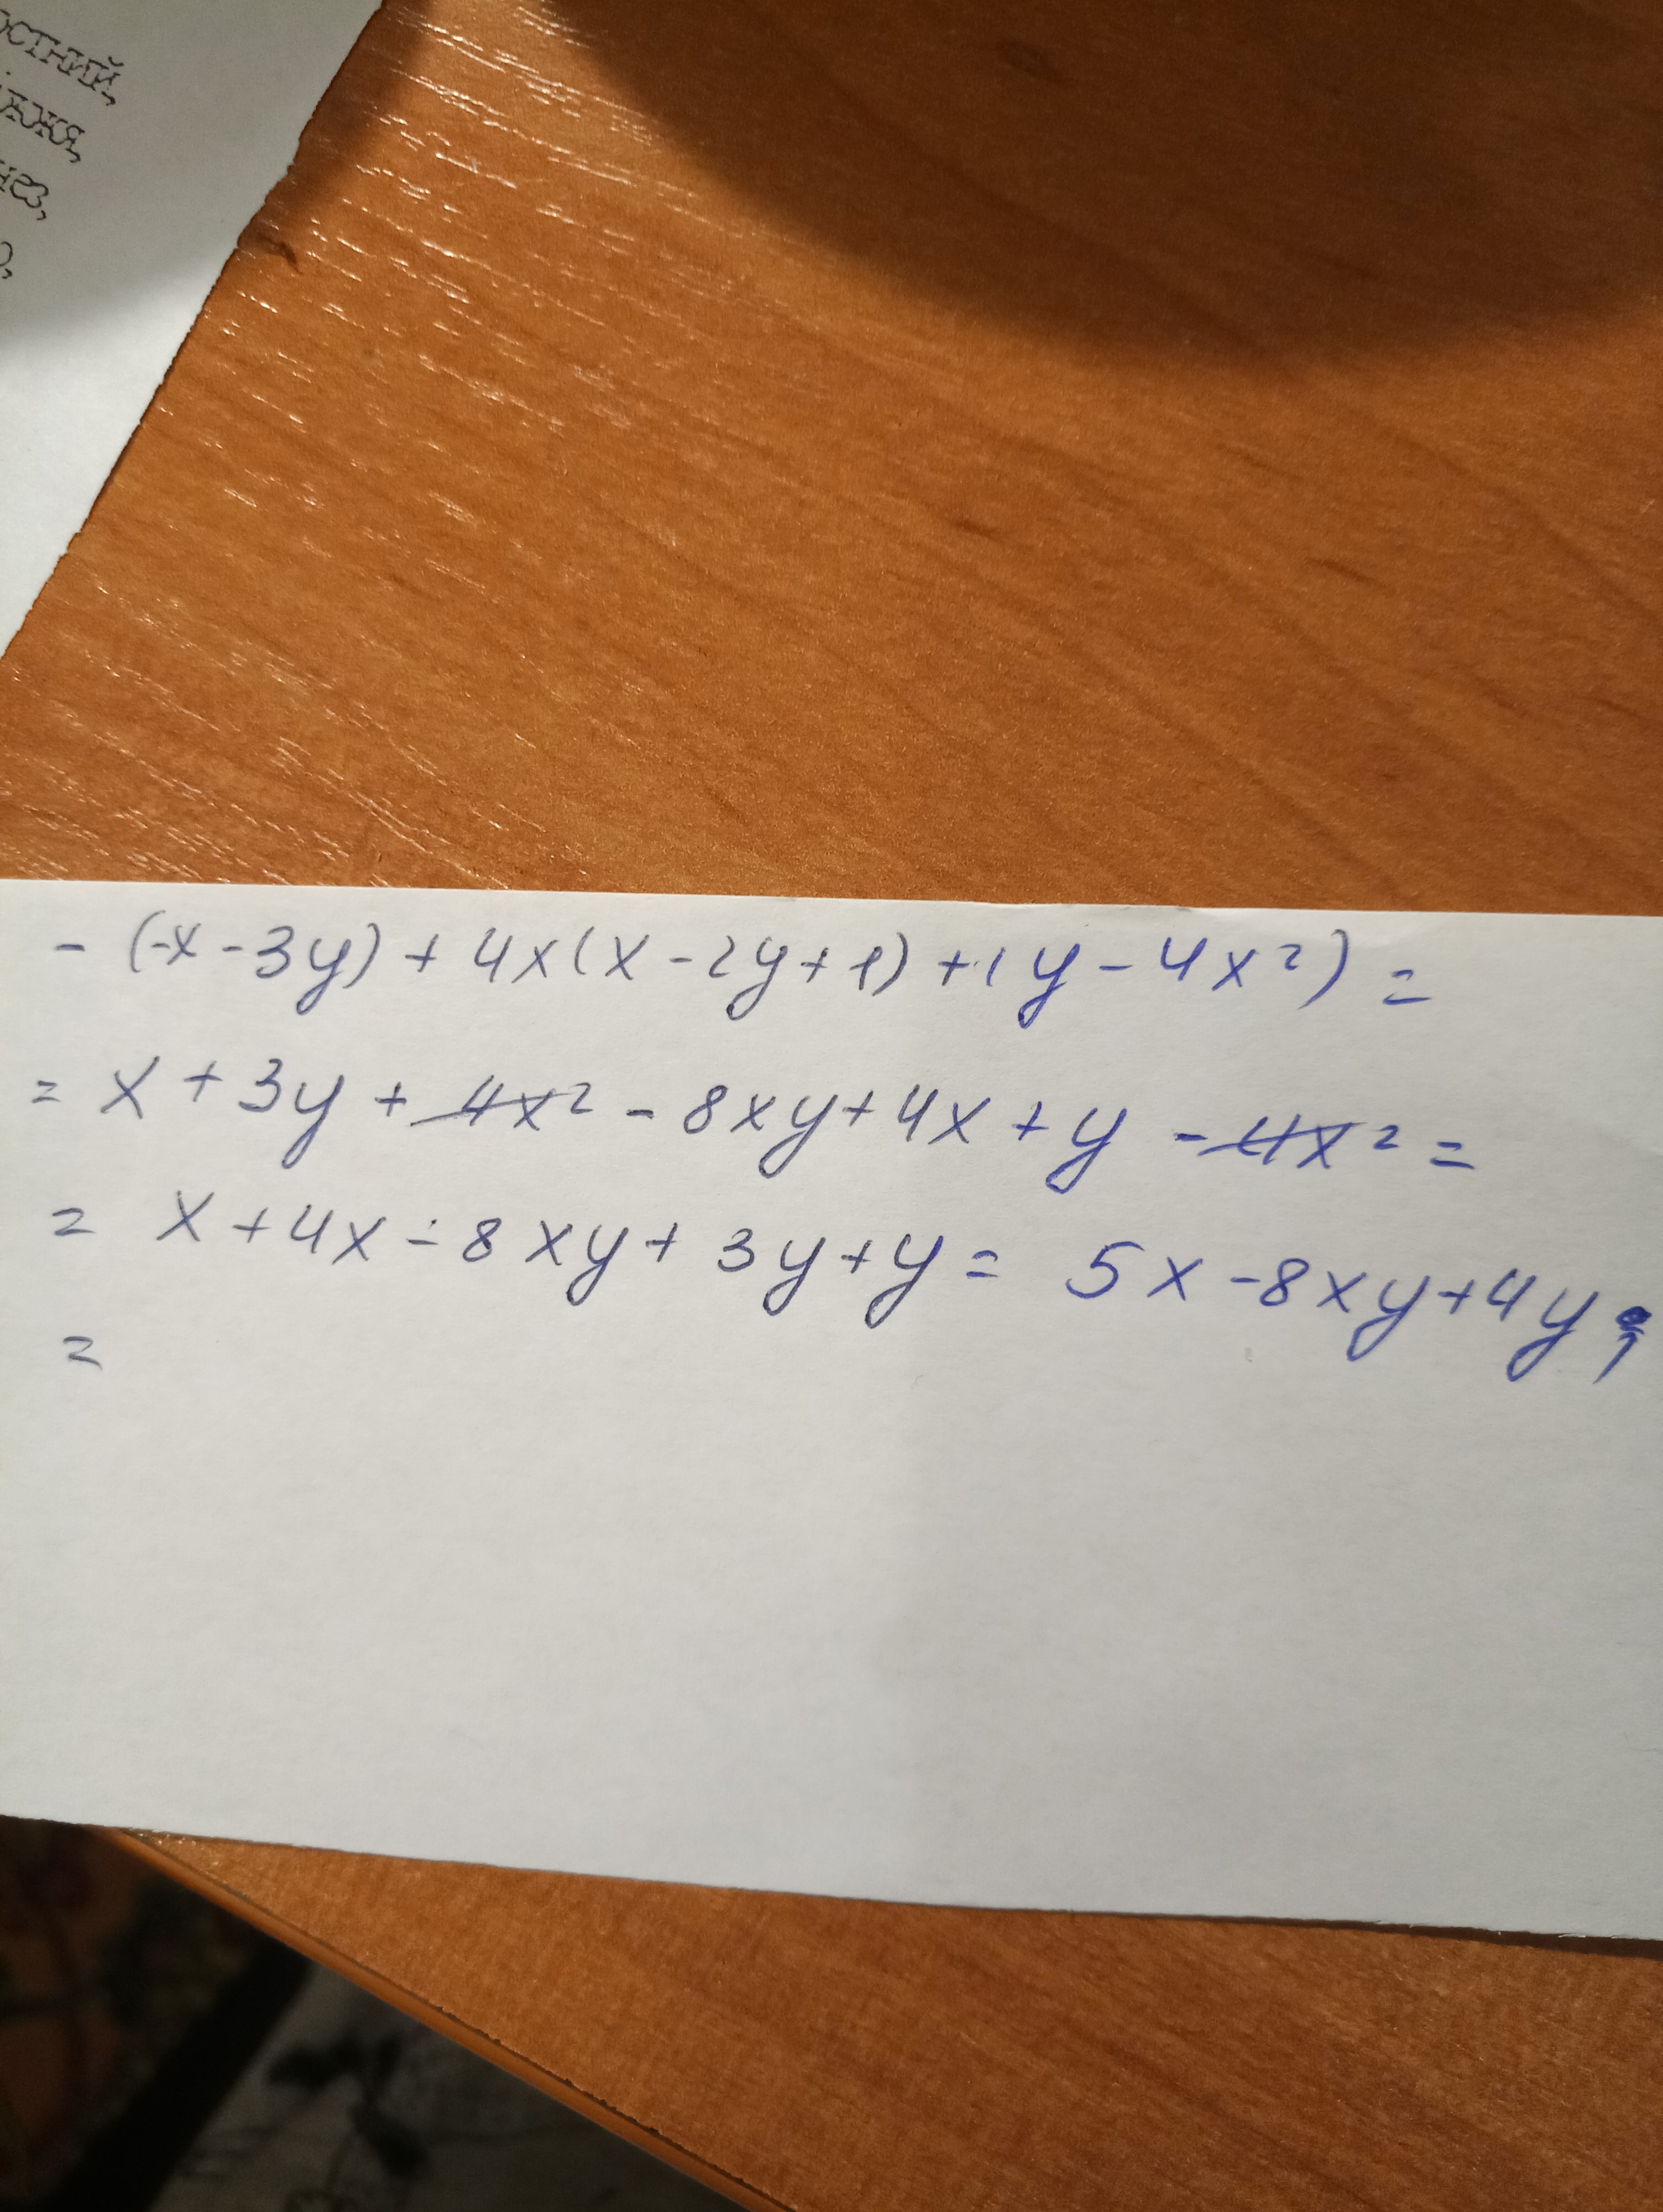 - (-x - 3y) + 4x(x - 2y + 1) + (y - 4x²) =
= x + 3y + 4x² - 8xy + 4x + y - 4x² =
= x + 4x - 8xy + 3y + y = 5x - 8xy + 4y;
=